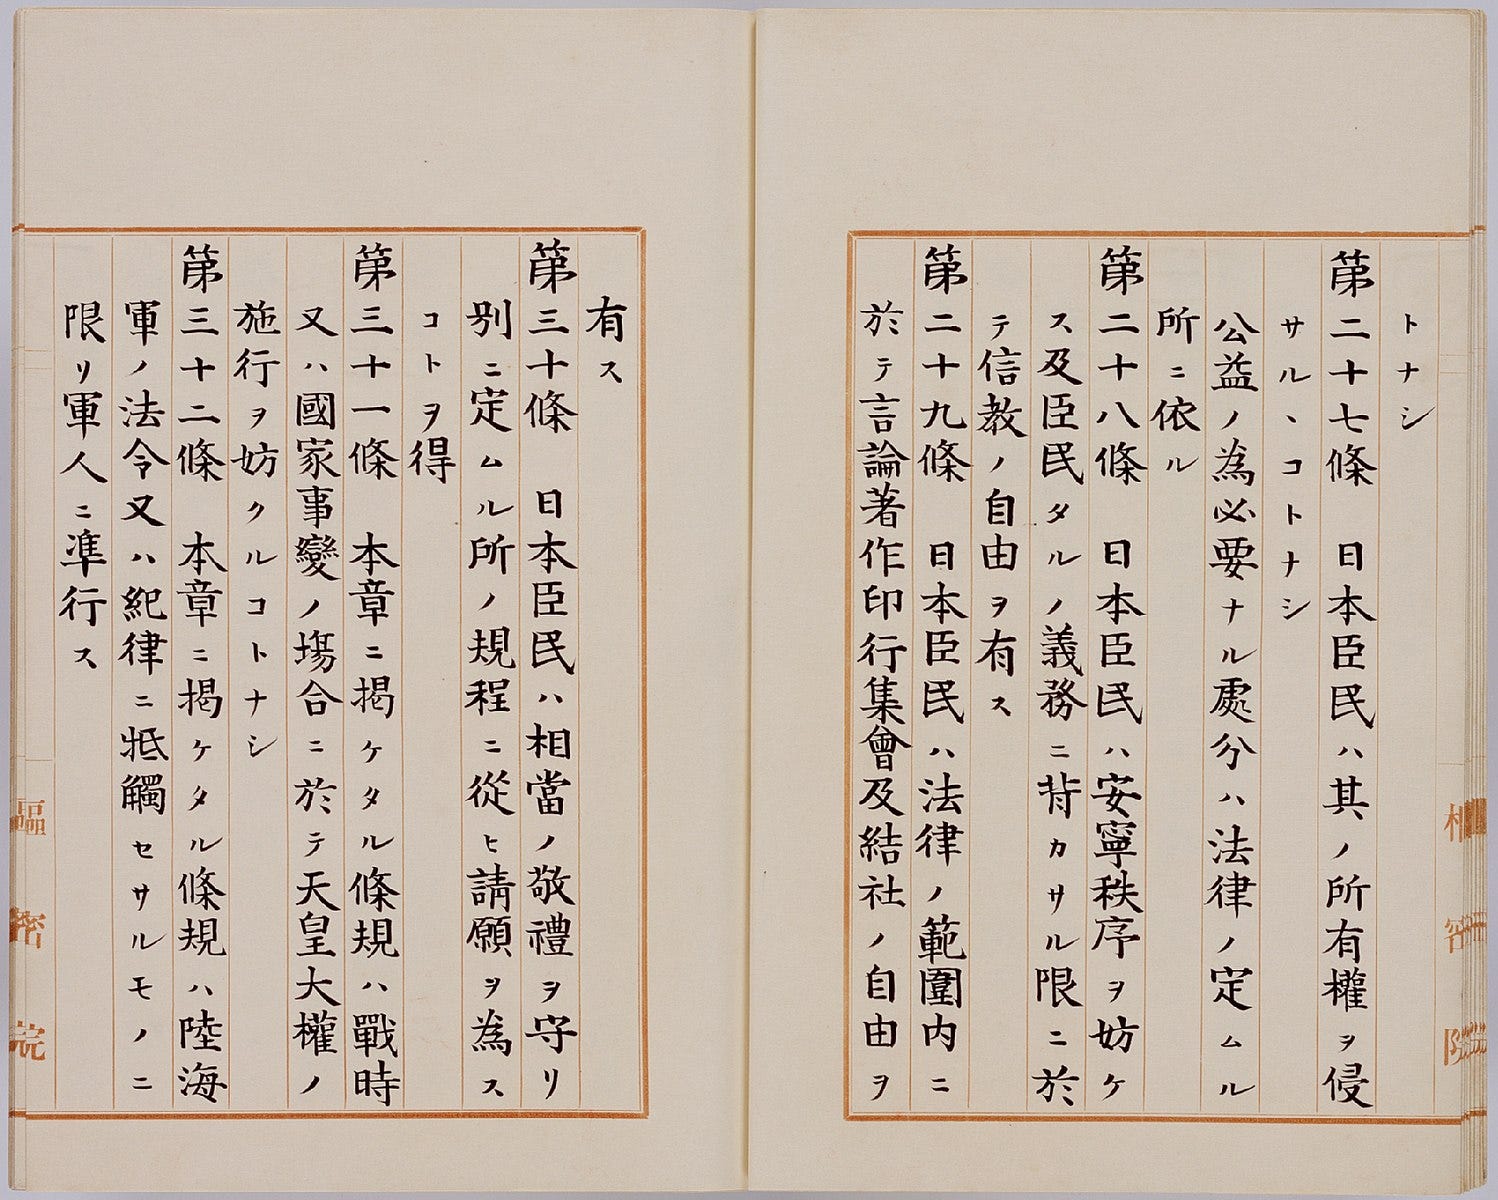 トナシ
第二十七條　日本臣民ハ其ノ所有權ヲ侵
サルヽコトナシ
公益ノ為必要ナル處分ハ法律ノ定ムル
所ニ依ル
第二十八條　日本臣民ハ安寧秩序ヲ妨ケ
ス及臣民タルノ義務ニ背カサル限ニ於
テ信教ノ自由ヲ有ス
第二十九條　日本臣民ハ法律ノ範圍内ニ
於テ言論著作印行集會及結社ノ自由ヲ
有ス
第三十條　日本臣民ハ相當ノ敬禮ヲ守リ
別ニ定ムル所ノ規程ニ從ヒ請願ヲ為ス
コトヲ得
第三十一條　本章ニ掲ケタル條規ハ戰時
又ハ國家事變ノ塲合ニ於テ天皇大權ノ
施行ヲ妨クルコトナシ
第三十二條　本章ニ掲ケタル條規ハ陸海
軍ノ法令又ハ紀律ニ牴觸セサルモノニ
限リ軍人ニ準行ス
樞密院